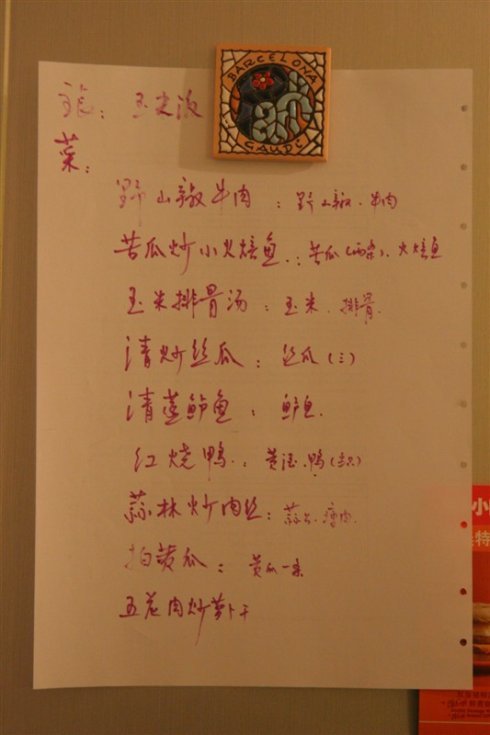 BARCELONA
GAUDÍ
玉米液
菜：
野山椒牛肉：野山椒、牛肉
苦瓜炒小火焙鱼：苦瓜(两条)、火焙鱼
玉米排骨汤：玉米、排骨
清炒丝瓜：丝瓜(三)
清蒸鲈鱼：鲈鱼
红烧鸭：黄酒、鸭
蒜林炒肉丝：蒜、瘦肉
拍黄瓜：黄瓜一条
五花肉炒萝卜干
小
特